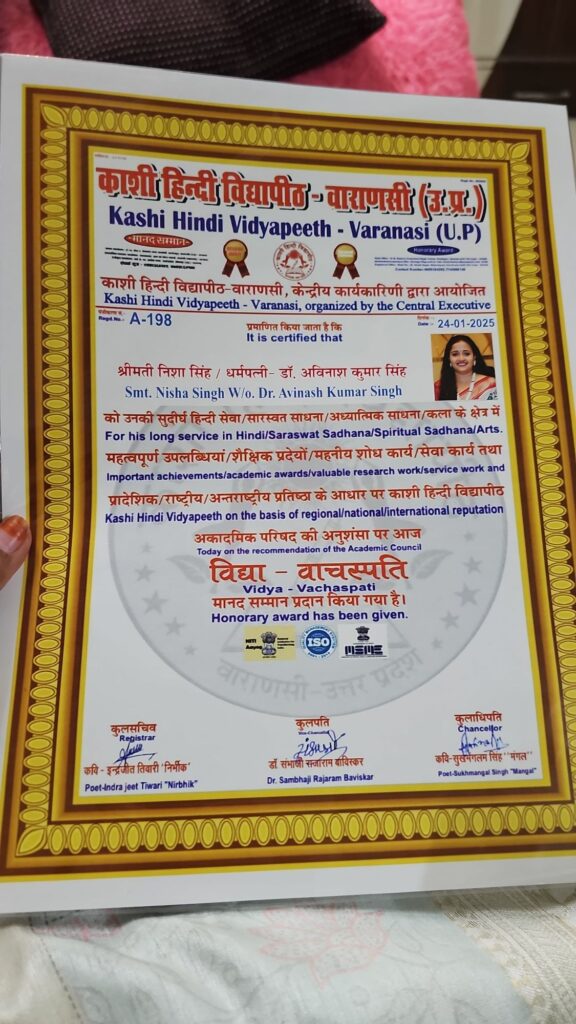 काशी हिन्दी विद्यापीठ - वाराणसी (उ.प्र.)
Kashi Hindi Vidyapeeth - Varanasi (U.P)
मानद सम्मान
Honorary Award
काशी हिन्दी विद्यापीठ-वाराणसी, केन्द्रीय कार्यकारिणी द्वारा आयोजित
Kashi Hindi Vidyapeeth - Varanasi, organized by the Central Executive
Regd.No:- A-198
Date :- 24-01-2025
प्रमाणित किया जाता है कि
It is certified that
श्रीमती निशा सिंह / धर्मपत्नी- डॉ. अविनाश कुमार सिंह
Smt. Nisha Singh W/o. Dr. Avinash Kumar Singh
को उनकी सुदीर्घ हिन्दी सेवा/सारस्वत साधना/अध्यात्मिक साधना/कला के क्षेत्र में
For his long service in Hindi/Saraswat Sadhana/Spiritual Sadhana/Arts.
महत्वपूर्ण उपलब्धियां/शैक्षिक प्रदेयों/महनीय शोध कार्य/सेवा कार्य तथा
Important achievements/academic awards/valuable research work/service work and
प्रादेशिक/राष्ट्रीय/अन्तराष्ट्रीय प्रतिष्ठा के आधार पर काशी हिन्दी विद्यापीठ
Kashi Hindi Vidyapeeth on the basis of regional/national/international reputation
अकादमिक परिषद की अनुशंसा पर आज
Today on the recommendation of the Academic Council
विद्या - वाचस्पति
Vidya - Vachaspati
मानद सम्मान प्रदान किया गया है।
Honorary award has been given.
NITI Aayog
ISO
MSME
वाराणसी-उत्तर प्रदेश
कुलसचिव
Registrar
कवि - इन्द्रजीत तिवारी "निर्भीक"
Poet-Indra jeet Tiwari "Nirbhik"
कुलपति
Vice-Chancellor
डॉ संभाजी राजाराम बाविस्कर
Dr. Sambhaji Rajaram Baviskar
कुलाधिपति
Chancellor
कवि-सुखमंगलम सिंह "मंगल"
Poet-Sukhmangal Singh "Mangal"